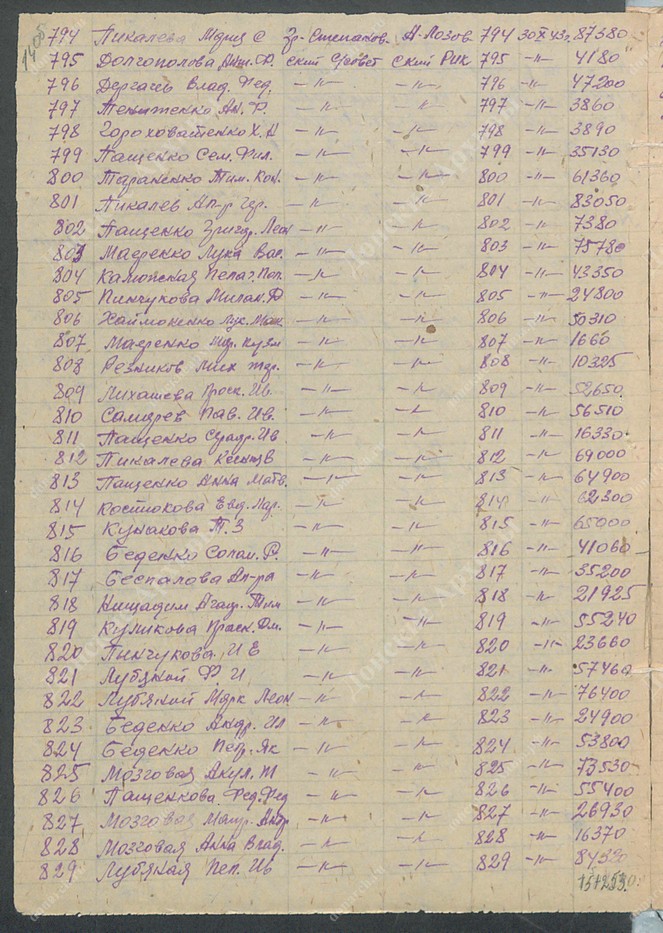 1408
794 Пикалева Мария С Гр. Степанов- А-Лозов 794 30 X 43г. 87380
795 Долгополова Анн. Ф. ский С/совет ский РИК 795 -"- 4180
796 Дергачев Влад. Фед. -"- -"- 796 -"- 47200
797 Ан. Ф. -"- -"- 797 -"- 3860
798 Гороховатенко Х. Н -"- -"- 798 -"- 3890
799 Пащенко Сем. Фил. -"- -"- 799 -"- 35130
800 Тараненко Тим. Кон. -"- -"- 800 -"- 61360
801 Пикалев Ал-р Гр. -"- -"- 801 -"- 83050
802 Пащенко Григор. Леон -"- -"- 802 -"- 7380
803 Мазренко Лука Вас. -"- -"- 803 -"- 75780
804 Пелаг. -"- -"- 804 -"- 43350
805 Пинчукова Милан. Ф -"- -"- 805 -"- 24800
806 Хаймоненко Лук. -"- -"- 806 -"- 50310
807 Мазренко Мар. Кузм -"- -"- 807 -"- 1660
808 Резников Мих -"- -"- 808 -"- 10325
809 Лихашева Проск. Ив. -"- -"- 809 -"- 52650
810 Самарев Пав. Ив. -"- -"- 810 -"- 56510
811 Пащенко Ив -"- -"- 811 -"- 16330
812 Пикалева -"- -"- 812 -"- 69000
813 Пащенко Анна Матв. -"- -"- 813 -"- 64900
814 Костюкова Евд. Лар. -"- -"- 814 -"- 62300
815 Кунакова Т. З -"- -"- 815 -"- 65000
816 Беденко Солом. Р. -"- -"- 816 -"- 41060
817 Беспалова Ал-ра -"- -"- 817 -"- 35200
818 Нищадим Агаф. Тим -"- -"- 818 -"- 21925
819 Куликова Проск. Дм. -"- -"- 819 -"- 55240
820 Пинчукова И Е -"- -"- 820 -"- 23660
821 Лубяной Ф И -"- -"- 821 -"- 57460
822 Лубяной Марк Леон -"- -"- 822 -"- 76400
823 Беденко Андр. Ил -"- -"- 823 -"- 24900
824 Беденко Пед. Як -"- -"- 824 -"- 53800
825 Мозговая Акул. М -"- -"- 825 -"- 73530
826 Пащенкова Фед. Фед -"- -"- 826 -"- 55400
827 Мозговая Андр -"- -"- 827 -"- 26930
828 Мозговая Анна Влад. -"- -"- 828 -"- 16370
829 Лубяная Пел. Ив -"- -"- 829 -"-